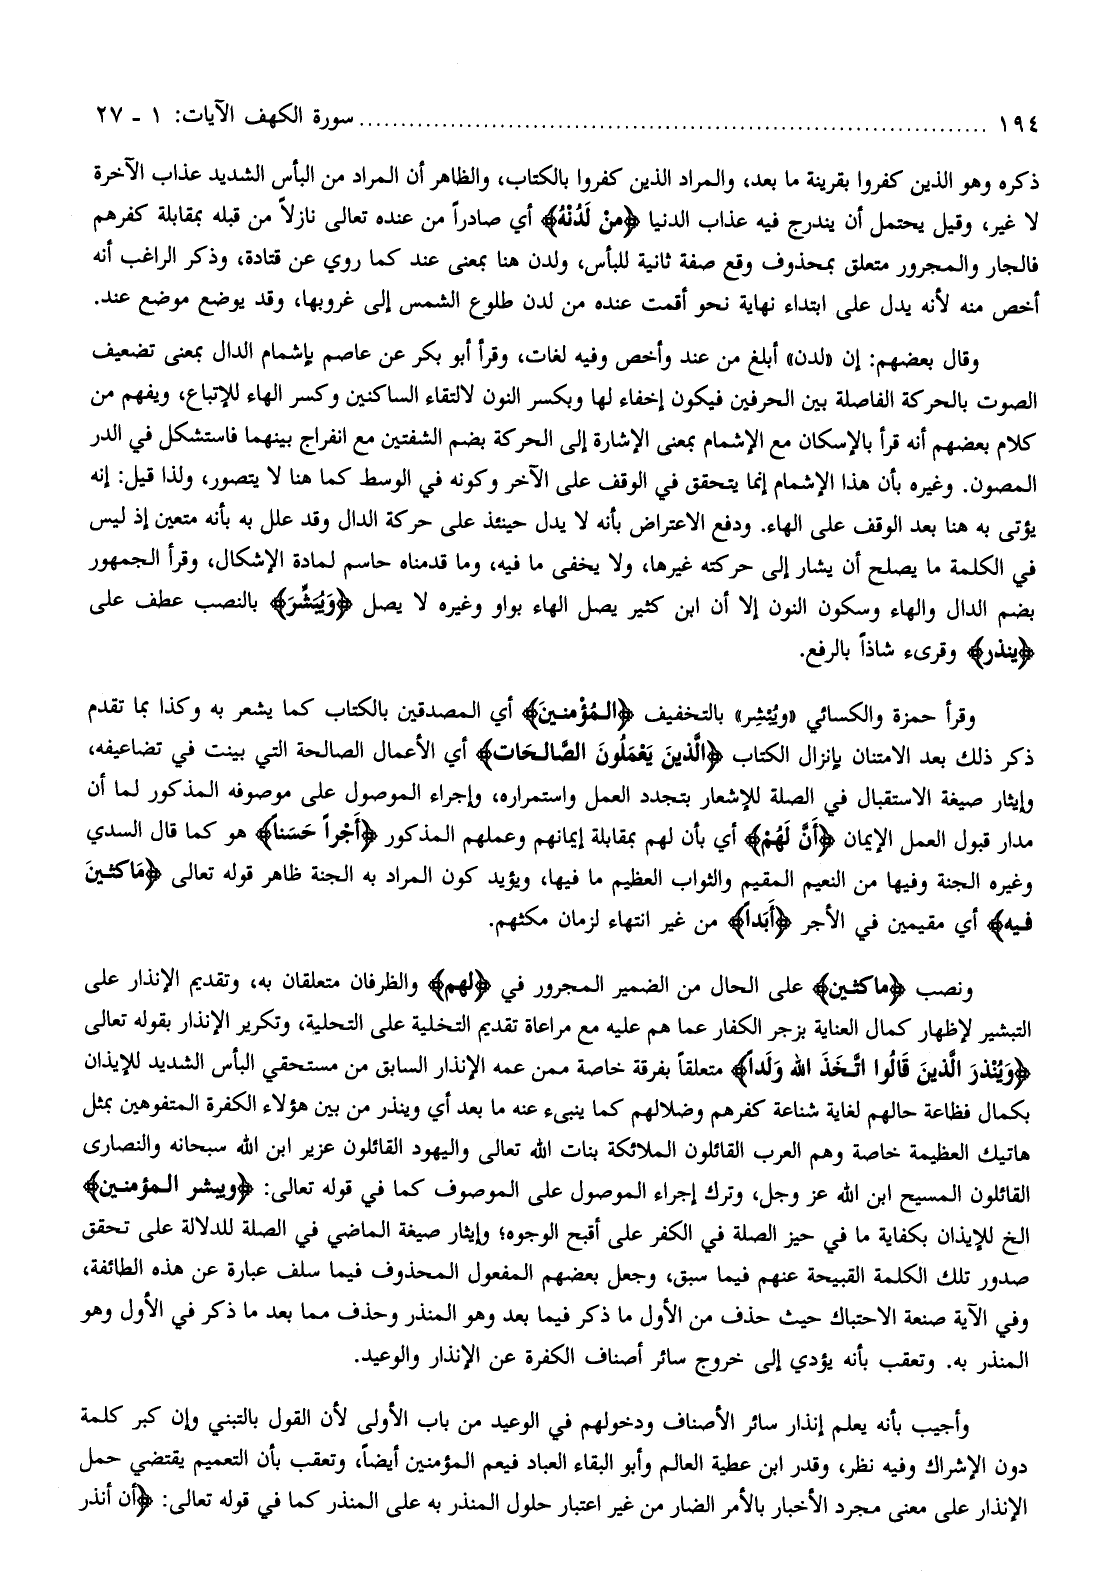 ١٩٤ ............ سورة الكهف الآيات: ١ ـ ٢٧
ذكره وهو الذين كفروا بقرينة ما بعد، والمراد الذين كفروا بالكتاب، والظاهر أن المراد من البأس الشديد عذاب الآخرة
لا غير، وقيل يحتمل أن يندرج فيه عذاب الدنيا ﴿مِنْ لَدُنْهُ﴾ أي صادراً من عنده تعالى نازلاً من قبله بمقابلة كفرهم
فالجار والمجرور متعلق بمحذوف وقع صفة ثانية للبأس، ولدن هنا بمعنى عند كما روي عن قتادة، وذكر الراغب أنه
أخص منه لأنه يدل على ابتداء نهاية نحو أقمت عنده من لدن طلوع الشمس إلى غروبها، وقد يوضع موضع عند.
وقال بعضهم: إن «لدن» أبلغ من عند وأخص وفيه لغات، وقرأ أبو بكر عن عاصم بإشمام الدال بمعنى تضعيف
الصوت بالحركة الفاصلة بين الحرفين فيكون إخفاء لها وبكسر النون لالتقاء الساكنين وكسر الهاء للإتباع، ويفهم من
كلام بعضهم أنه قرأ بالإسكان مع الإشمام بمعنى الإشارة إلى الحركة بضم الشفتين مع انفراج بينهما فاستشكل في الدر
المصون. وغيره بأن هذا الإشمام إنما يتحقق في الوقف على الآخر وكونه في الوسط كما هنا لا يتصور، ولذا قيل: إنه
يؤتى به هنا بعد الوقف على الهاء. ودفع الاعتراض بأنه لا يدل حينئذ على حركة الدال وقد علل به بأنه متعين إذ ليس
في الكلمة ما يصلح أن يشار إلى حركته غيرها، ولا يخفى ما فيه، وما قدمناه حاسم لمادة الإشكال، وقرأ الجمهور
بضم الدال والهاء وسكون النون إلا أن ابن كثير يصل الهاء بواو وغيره لا يصل ﴿وَيُبَشِّرَ﴾ بالنصب عطف على
﴿ينذر﴾ وقرىء شاذاً بالرفع.
وقرأ حمزة والكسائي «ويُبْشِر» بالتخفيف ﴿الْمُؤْمنينَ﴾ أي المصدقين بالكتاب كما يشعر به وكذا بما تقدم
ذكر ذلك بعد الامتنان بإنزال الكتاب ﴿الَّذينَ يَعْمَلُونَ الصَّالحَات﴾ أي الأعمال الصالحة التي بينت في تضاعيفه،
وإيثار صيغة الاستقبال في الصلة للإشعار بتجدد العمل واستمراره، وإجراء الموصول على موصوفه المذكور لما أن
مدار قبول العمل الإيمان ﴿أَنَّ لَهُمْ﴾ أي بأن لهم بمقابلة إيمانهم وعملهم المذكور ﴿أَجْراً حَسَناً﴾ هو كما قال السدي
وغيره الجنة وفيها من النعيم المقيم والثواب العظيم ما فيها، ويؤيد كون المراد به الجنة ظاهر قوله تعالى ﴿مَاكثينَ
فيه﴾ أي مقيمين في الأجر ﴿أَبَداً﴾ من غير انتهاء لزمان مكثهم.
ونصب ﴿ماكثين﴾ على الحال من الضمير المجرور في ﴿لهم﴾ والظرفان متعلقان به، وتقديم الإنذار على
التبشير لإظهار كمال العناية بزجر الكفار عما هم عليه مع مراعاة تقديم التخلية على التحلية، وتكرير الإنذار بقوله تعالى
﴿وَيُنْذرَ الَّذينَ قَالُوا اتَّخَذَ الله وَلَداً﴾ متعلقاً بفرقة خاصة ممن عمه الإنذار السابق من مستحقي البأس الشديد للإيذان
بكمال فظاعة حالهم لغاية شناعة كفرهم وضلالهم كما ينبىء عنه ما بعد أي وينذر من بين هؤلاء الكفرة المتفوهين بمثل
هاتيك العظيمة خاصة وهم العرب القائلون الملائكة بنات الله تعالى واليهود القائلون عزير ابن الله سبحانه والنصارى
القائلون المسيح ابن الله عز وجل، وترك إجراء الموصول على الموصوف كما في قوله تعالى: ﴿ويبشر المؤمنين﴾
الخ للإيذان بكفاية ما في حيز الصلة في الكفر على أقبح الوجوه؛ وإيثار صيغة الماضي في الصلة للدلالة على تحقق
صدور تلك الكلمة القبيحة عنهم فيما سبق، وجعل بعضهم المفعول المحذوف فيما سلف عبارة عن هذه الطائفة،
وفي الآية صنعة الاحتباك حيث حذف من الأول ما ذكر فيما بعد وهو المنذر وحذف مما بعد ما ذكر في الأول وهو
المنذر به. وتعقب بأنه يؤدي إلى خروج سائر أصناف الكفرة عن الإنذار والوعيد.
وأجيب بأنه يعلم إنذار سائر الأصناف ودخولهم في الوعيد من باب الأولى لأن القول بالتبني وإن كبر كلمة
دون الإشراك وفيه نظر، وقدر ابن عطية العالم وأبو البقاء العباد فيعم المؤمنين أيضاً، وتعقب بأن التعميم يقتضي حمل
الإنذار على معنى مجرد الأخبار بالأمر الضار من غير اعتبار حلول المنذر به على المنذر كما في قوله تعالى: ﴿أن أنذر